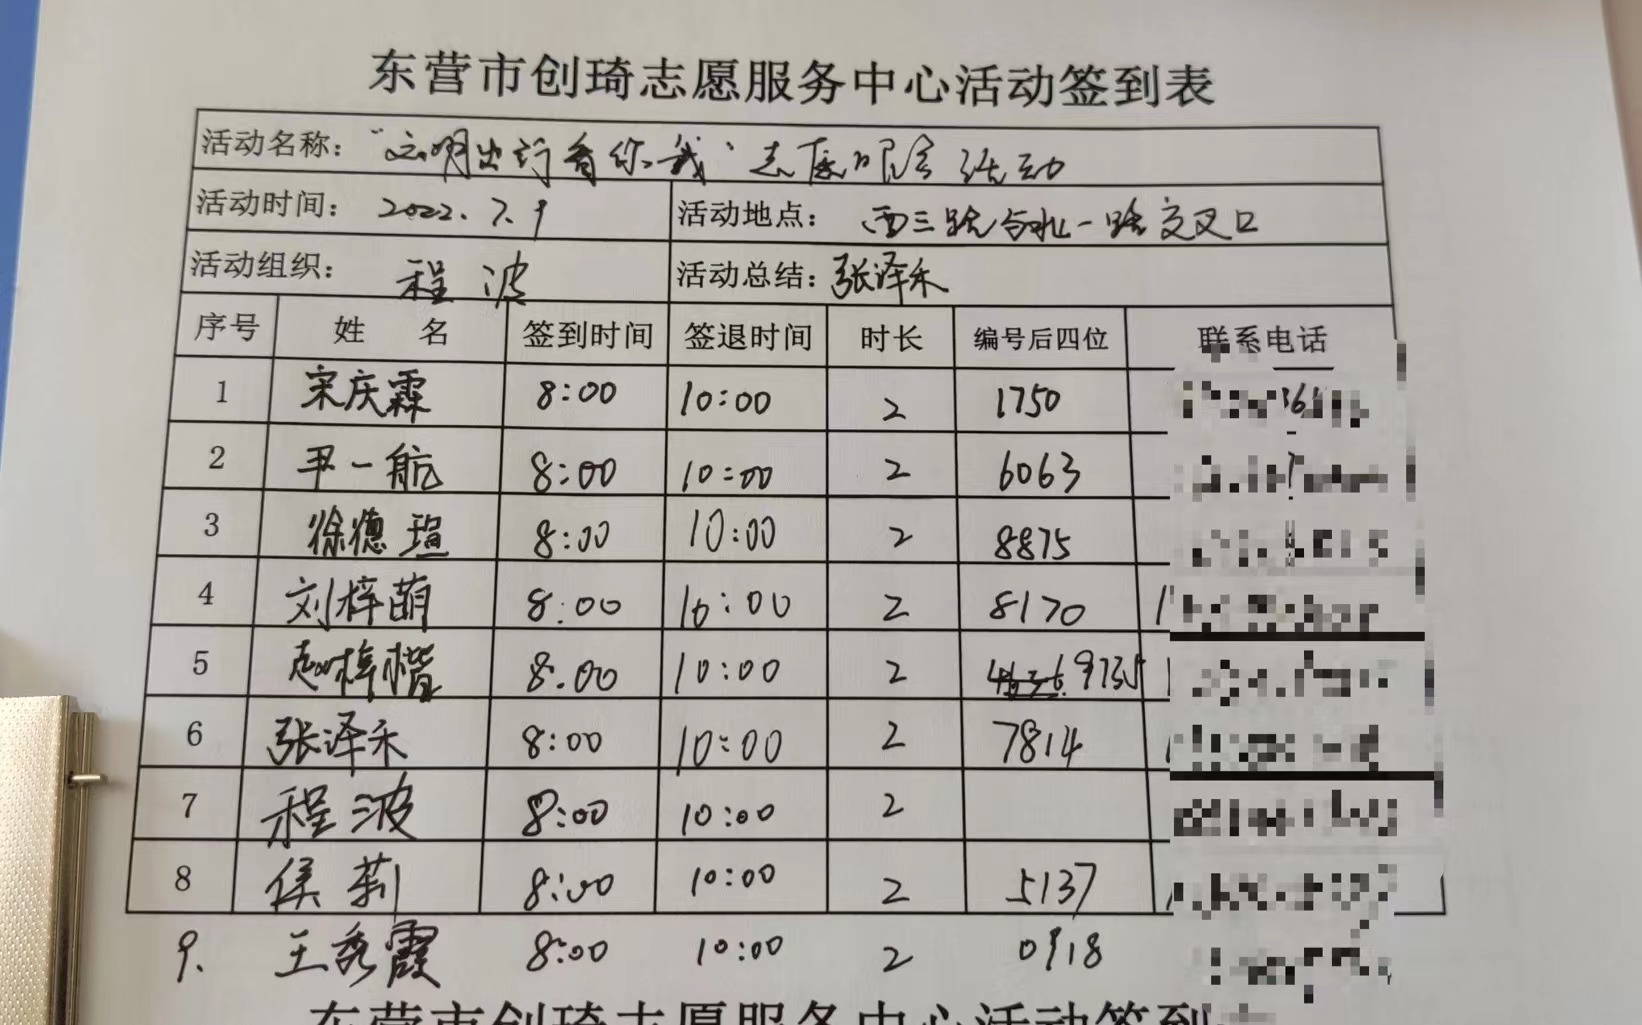 东营市创琦志愿服务中心活动签到表
活动名称："文明出行看你我"志愿服务活动
活动时间：2022.7.9 活动地点：西三路与北一路交叉口
活动组织：程波 活动总结：张泽禾
序号 姓名 签到时间 签退时间 时长 编号后四位 联系电话
1 宋庆霖 8:00 10:00 2 1750
2 尹一航 8:00 10:00 2 6063
3 徐德瑄 8:00 10:00 2 8875
4 刘梓萌 8:00 10:00 2 8170
5 赵梓楷 8:00 10:00 2 9735
6 张泽禾 8:00 10:00 2 7814
7 程波 8:00 10:00 2
8 侯莉 8:00 10:00 2 5137
9. 王秀霞 8:00 10:00 2 0918
东营市创琦志愿服务中心活动签到